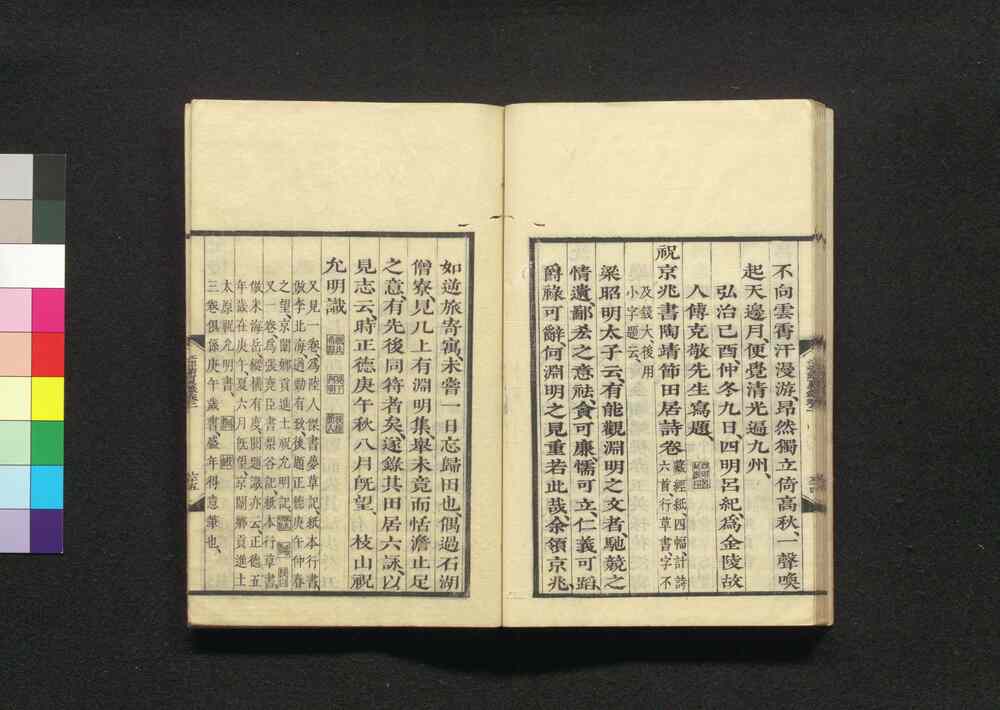 不向雲霄汗漫游、昂然獨立倚高秋、一聲喚
起天邊月、便覺清光遍九州、
弘治己酉仲冬九日、四明呂紀爲金陵故
人傅克敬先生寫題、
祝京兆書陶靖節田居詩卷 藏經紙、四幅、計詩
六首、行草書、字不
及載、大、後用
小字題云、
梁昭明太子云、有能觀淵明之文者、馳競之
情遺、鄙吝之意祛、貪可廉、懦可立、仁義可蹈、
爵祿可辭、何淵明之見重若此哉、余領京兆、
如逆旅寄寓、未嘗一日忘歸田也、偶過石湖
僧寮、見几上有淵明集、舉未竟而恬澹止足
之意、有先後同符者矣、遂錄其田居六詠、以
見志云、時正德庚午秋八月旣望、枝山祝
允明識
又見一卷、爲陸人傑書夢草記、紙本行書、
倣李北海、遒勁有致、後題正德庚午仲春
之望、京闈鄉貢進士祝允明記、
又一卷、爲張堯臣書梨谷記、紙本行草書、
倣米海岳、縱橫有度、別題識亦云正德五
年歲在庚午、夏六月旣望、京闈鄉貢進士
太原祝允明書、
三卷俱係庚午歲書、盛年得意筆也、